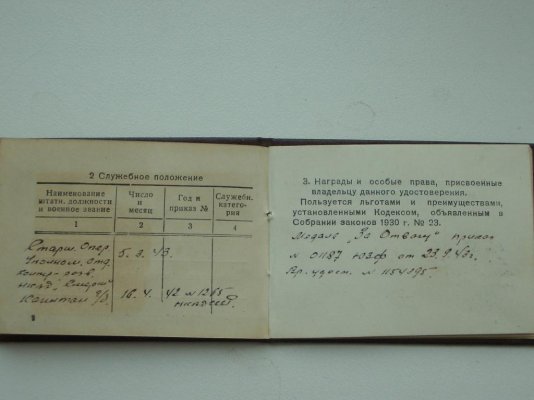 2 Служебное положение
Наименование штатн. должности и военное звание
Число и месяц
Год и приказ №
Служебн. категория
1
2
3
4
Старш. Опер
5. 3. 43.
Уполном. отд
контр-разв.
нквд „Смерш"
Капитан г/б.
16. 4.
42 № 1265
нквд ссср.
8
3. Награды и особые права, присвоенные
владельцу данного удостоверения.
Пользуется льготами и преимуществами,
установленными Кодексом, объявленным в
Собрании законов 1930 г. № 23.
Медаль „За Отвагу" приказ
№ 0187 ЮЗФ от 23.9.42г.
Вр. удост. № 1154095.